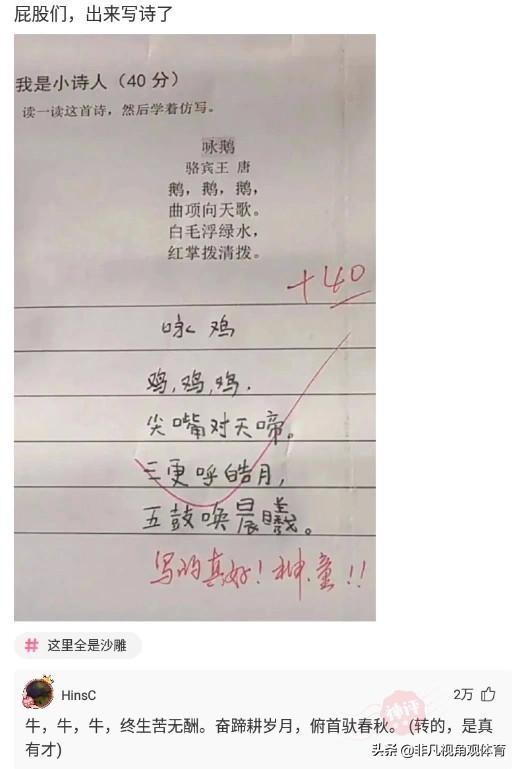 屁股们，出来写诗了
我是小诗人（40分）
读一读这首诗，然后学着仿写。
咏鹅
骆宾王 唐
鹅，鹅，鹅，
曲项向天歌。
白毛浮绿水，
红掌拨清拨。
+40
咏鸡
鸡,鸡,鸡.
尖嘴对天啼。
三更呼皓月,
五鼓唤晨曦。
写的真好！神童！！
# 这里全是沙雕
HinsC
2万
神评
牛，牛，牛，终生苦无酬。奋蹄耕岁月，俯首驮春秋。 (转的，是真
有才)
头条 @非凡视角观体育